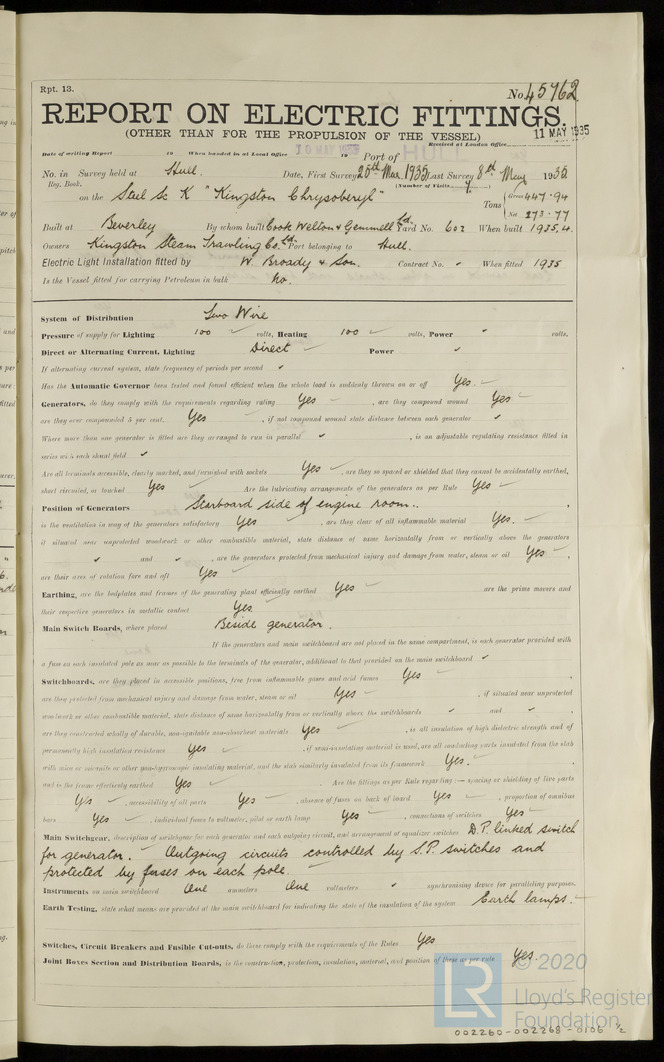 Rpt. 13.
No. 45962
REPORT ON ELECTRIC FITTINGS.
(OTHER THAN FOR THE PROPULSION OF THE VESSEL)
Received at London Office 11 MAY 1935
Date of writing Report 19 When handed in at Local Office 10 MAY 19 Port of HULL
No. in Survey held at Hull. Date, First Survey 25th Mar. 1935 Last Survey 8th May 1935
Reg. Book. (Number of Visits 7)
on the Steel Sc K "Kingston Chrysoberyl" Tons Gross 447.94
Net 173.77
Built at Beverley By whom built Cook Welton & Gemmell Ltd. Yard No. 602 When built 1935.4.
Owners Kingston Steam Trawling Co. Ltd. Port belonging to Hull.
Electric Light Installation fitted by W. Broady & Son. Contract No. When fitted 1935
Is the Vessel fitted for carrying Petroleum in bulk No.
System of Distribution Two Wire
Pressure of supply for Lighting 100 volts, Heating 100 volts, Power volts.
Direct or Alternating Current, Lighting Direct Power
If alternating current system, state frequency of periods per second
Has the Automatic Governor been tested and found efficient when the whole load is suddenly thrown on or off Yes.
Generators, do they comply with the requirements regarding rating Yes, are they compound wound Yes
are they over compounded 5 per cent. Yes, if not compound wound state distance between each generator
Where more than one generator is fitted are they arranged to run in parallel, is an adjustable regulating resistance fitted in
series with each shunt field
Are all terminals accessible, clearly marked, and furnished with sockets Yes, are they so spaced or shielded that they cannot be accidentally earthed,
short circuited, or touched Yes Are the lubricating arrangements of the generators as per Rule Yes
Position of Generators Starboard side of engine room..
is the ventilation in way of the generators satisfactory Yes, are they clear of all inflammable material Yes.
if situated near unprotected woodwork or other combustible material, state distance of same horizontally from or vertically above the generators
and, are the generators protected from mechanical injury and damage from water, steam or oil Yes,
are their axes of rotation fore and aft Yes
Earthing, are the bedplates and frames of the generating plant efficiently earthed Yes are the prime movers and
their respective generators in metallic contact Yes
Main Switch Boards, where placed Beside generator.
If the generators and main switchboard are not placed in the same compartment, is each generator provided with
a fuse on each insulated pole as near as possible to the terminals of the generator, additional to that provided on the main switchboard
Switchboards, are they placed in accessible positions, free from inflammable gases and acid fumes Yes,
are they protected from mechanical injury and damage from water, steam or oil Yes, if situated near unprotected
woodwork or other combustible material, state distance of same horizontally from or vertically above the switchboards and,
are they constructed wholly of durable, non-ignitable non-absorbent materials Yes, is all insulation of high dielectric strength and of
permanently high insulation resistance Yes, if semi-insulating material is used, are all conducting parts insulated from the slab
with mica or micanite or other non-hygroscopic insulating material, and the slab similarly insulated from its framework Yes.,
and is the frame effectively earthed Yes. Are the fittings as per Rule regarding:— spacing or shielding of live parts
Yes, accessibility of all parts Yes, absence of fuses on back of board Yes, proportion of omnibus
bars Yes, individual fuses to voltmeter, pilot or earth lamp Yes, connections of switches Yes
Main Switchgear, description of switchgear for each generator and each outgoing circuit, and arrangement of equalizer switches D.P. linked switch
for generator. Outgoing circuits controlled by S.P. switches and
protected by fuses on each pole.
Instruments on main switchboard One ammeters One voltmeters synchronising device for paralleling purposes.
Earth Testing, state what means are provided at the main switchboard for indicating the state of the insulation of the system Earth lamps.
Switches, Circuit Breakers and Fusible Cut-outs, do these comply with the requirements of the Rules Yes
Joint Boxes Section and Distribution Boards, is the construction, protection, insulation, material, and position of these as per rule Yes.
LR © 2020
Lloyd's Register
Foundation
002260-002268-0106 1/2